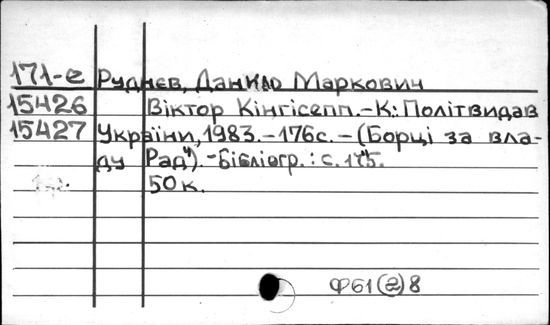 171-е Руднєв, Данило Маркович
15426 Віктор Кінгісепп.-К.: Політвидав
15427 України, 1983.-176с.-(Борці за вла-
ду Рад").-Бібліогр.: с. 175.
50к.
Ф61(2)8